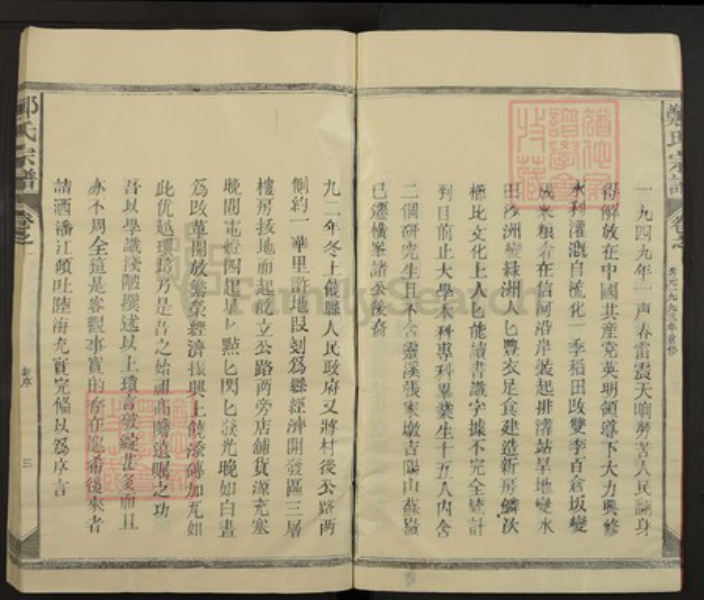 鄭氏宗譜
卷之
公元一九九三年重修
一九四九年一声春雷震天响勞苦人民翻身
得解放在中國共産党英明領導下大力興修
水利灌溉自流化一季稻田改變李百倉坂變
成米粮倉在信河沿岸裝起排灌站旱地變水
田沙洲變綠洲人匕豐衣足食建造新房鱗次
櫛比文化上人匕能讀書識字據不完全統計
到目前止大學本科專科畢業生十五人内含
二個研究生且不含靈溪張家墩吉陽山蘇嶺
已遷橫峯諸公後裔
九二年冬上饒縣人民政府又將村後公路兩
側約一華里許地段划為縣經濟開發區三層
樓房拔地而起屹立公路兩旁店舖貨源充塞
晚間電燈閃起星匕點匕閃匕發光晚如白晝
為改革開放繁榮經濟振興上饒添磚加瓦如
此优越環境乃是吾之始祖高瞻遠矚之功
吾以學識淺陋撰述以上瑣言
亦不周全這是客觀事實的存在忘希後來者
請洒潘江傾吐陸海充實完備以為序言
鄭氏宗譜
卷之
新序
三
FamilySearch